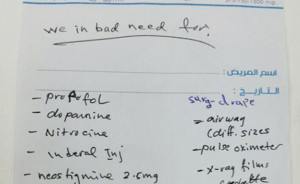 we in bad need for.
اسم المريض:
التاريخ:
- propofol
- dopamine
- Nitrocine
- Inderal Inj
- neostigmine 2.5mg
surg-drape
= airway
(diff. sizes
- pulse oximeter
- x-ray films